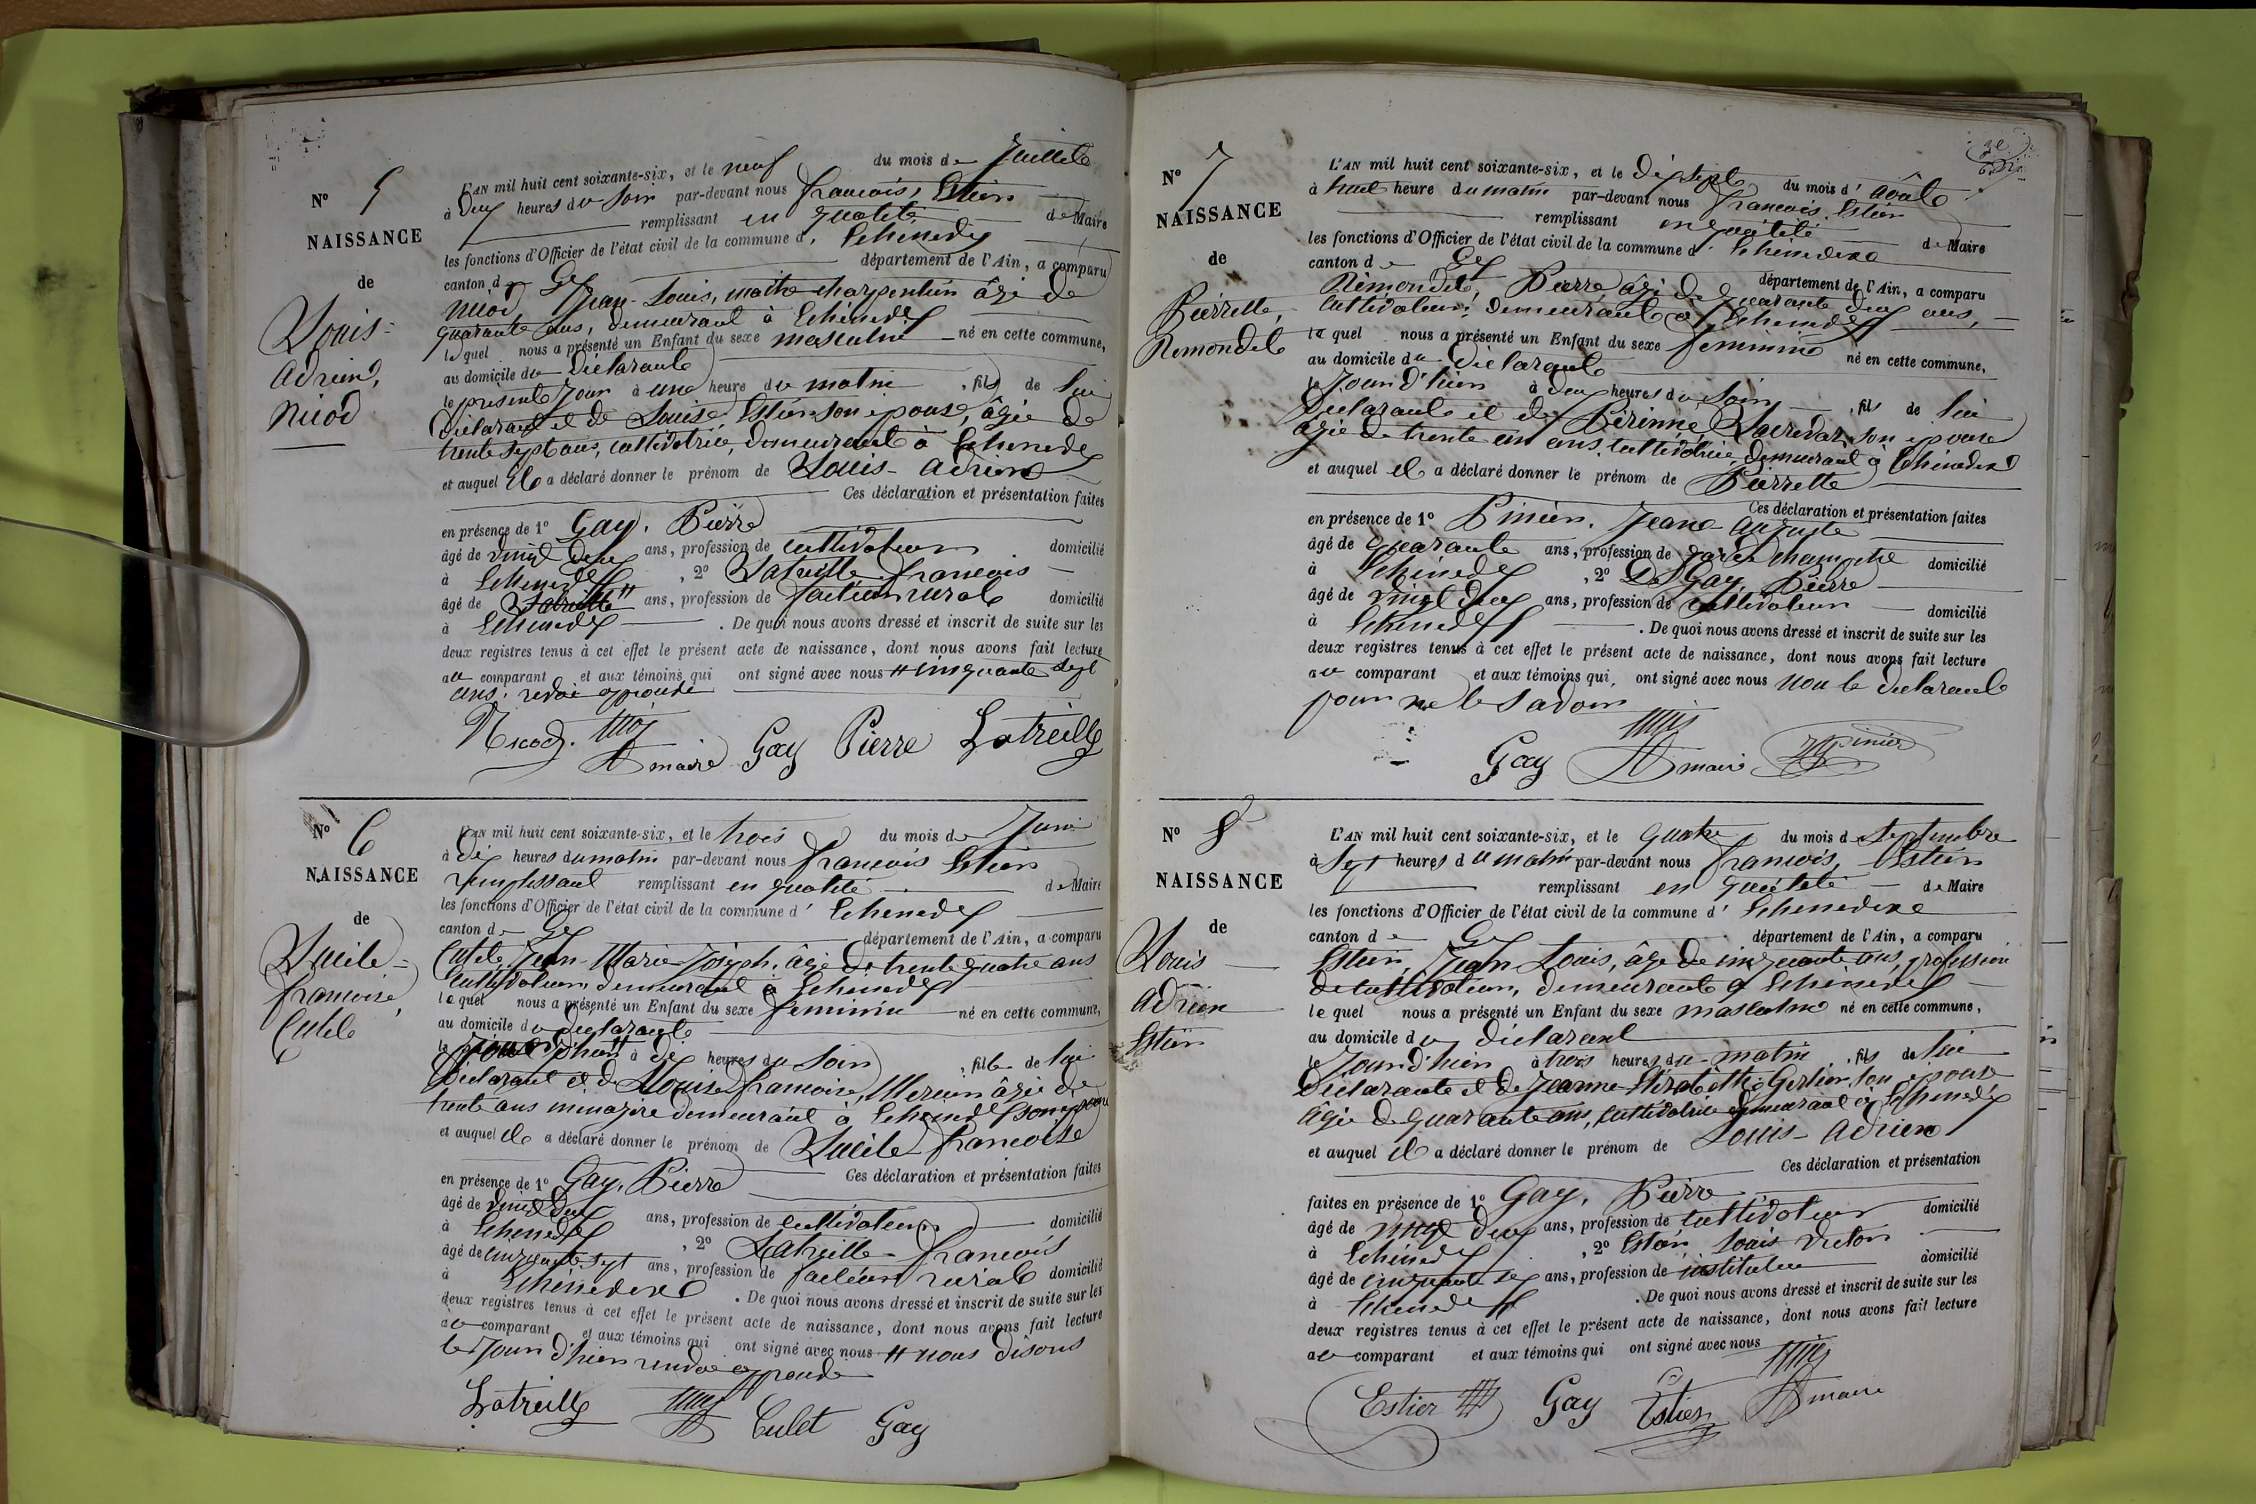 N° 5
NAISSANCE
de
Louis-
Adrien,
Nicod
L'AN mil huit cent soixante-six, et le neuf du mois de Juillet
à deux heures du soir par-devant nous françois, Estier
remplissant en qualité de Maire
les fonctions d'Officier de l'état civil de la commune d' Echenevex
canton de Gex département de l'Ain, a comparu
Nicod Jean-Louis, maitre charpentier âgé de
quarante ans, demeurant à Echenevex
lequel nous a présenté un Enfant du sexe masculin né en cette commune,
au domicile du déclarant
le présent jour à une heure du matin, fils de lui
déclarant et de Louise Estier son épouse, âgée de
trente sept ans, cultivatrice, demeurant à Echenevex
et auquel il a déclaré donner le prénom de Louis-Adrien
Ces déclaration et présentation faites
en présence de 1° Gay, Pierre
âgé de vingt deux ans, profession de cultivateur domicilié
à Echenevex, 2° Latreille françois
âgé de ans, profession de facteur rural domicilié
à Echenevex. De quoi nous avons dressé et inscrit de suite sur les
deux registres tenus à cet effet le présent acte de naissance, dont nous avons fait lecture
au comparant et aux témoins qui ont signé avec nous # cinquante sept
ans,
Nicod. maire Gay Pierre Latreille
N° 6
NAISSANCE
de
Lucile-
françoise,
Culet
L'AN mil huit cent soixante-six, et le trois du mois de Juin
à dix heures du matin par-devant nous françois Estier
remplissant remplissant en qualité de Maire
les fonctions d'Officier de l'état civil de la commune d' Echenevex
canton de Gex département de l'Ain, a comparu
Culet, Jean-Marie-Joseph, âgé de trente quatre ans
cultivateur, demeurant à Echenevex
lequel nous a présenté un Enfant du sexe feminin né en cette commune,
au domicile du déclarant
le jour d'hier à dix heures du soir, fille de lui
déclarant et de Louise françoise, Mercier âgée de
trente ans ménagère demeurant à Echenevex son épouse
et auquel il a déclaré donner le prénom de Lucile-françoise
Ces déclaration et présentation faites
en présence de 1° Gay, Pierre
âgé de vingt deux ans, profession de cultivateur domicilié
à Echenevex, 2° Latreille-françois
âgé de cinquante sept ans, profession de facteur rural domicilié
à Echenevex. De quoi nous avons dressé et inscrit de suite sur les
deux registres tenus à cet effet le présent acte de naissance, dont nous avons fait lecture
au comparant et aux témoins qui ont signé avec nous # nous disons
le jour d'hier
Latreille Culet Gay
N° 7
NAISSANCE
de
Pierrette,
Remondet
L'AN mil huit cent soixante-six, et le dix sept du mois d' Août
à huit heure du matin par-devant nous françois, Estier
remplissant en qualité de Maire
les fonctions d'Officier de l'état civil de la commune d' Echenevex
canton de Gex département de l'Ain, a comparu
Rémondet, Pierre âgé de quarante deux ans,
cultivateur, demeurant à Echenevex
lequel nous a présenté un Enfant du sexe feminin né en cette commune,
au domicile du déclarant
le jour d'hier à deux heures du soir, fils de lui
déclarant et de Périnne son épouse
âgée de trente un ans, cultivatrice, demeurant à Echenevex
et auquel il a déclaré donner le prénom de Pierrette
Ces déclaration et présentation faites
en présence de 1° Pinier, Jean-Auguste
âgé de quarante ans, profession de garde champetre domicilié
à Echenevex, 2° Gay Pierre
âgé de vingt deux ans, profession de cultivateur domicilié
à Echenevex. De quoi nous avons dressé et inscrit de suite sur les
deux registres tenus à cet effet le présent acte de naissance, dont nous avons fait lecture
au comparant et aux témoins qui, ont signé avec nous non le déclarant
pour ne le savoir
Gay maire Pinier
N° 8
NAISSANCE
de
Louis
Adrien
Estier
L'AN mil huit cent soixante-six, et le quatre du mois d septembre
à sept heures du matin par-devant nous françois, Estier
remplissant en qualité de Maire
les fonctions d'Officier de l'état civil de la commune d' Echenevex
canton de Gex département de l'Ain, a comparu
Estier, Jean Louis, âgé de cinquante ans, profession
de cultivateur, demeurant à Echenevex
lequel nous a présenté un Enfant du sexe masculin né en cette commune,
au domicile du déclarant
le jour d'hier à trois heures du matin, fils de lui
déclarant et de Jeanne son épouse
âgée de quarante ans, cultivatrice demeurant à Echenevex
et auquel il a déclaré donner le prénom de Louis-Adrien
Ces déclaration et présentation
faites en présence de 1° Gay, Pierre
âgé de vingt deux ans, profession de cultivateur domicilié
à Echenevex, 2° Estier Louis Victor
âgé de ans, profession de instituteur domicilié
à Echenevex. De quoi nous avons dressé et inscrit de suite sur les
deux registres tenus à cet effet le présent acte de naissance, dont nous avons fait lecture
au comparant et aux témoins qui ont signé avec nous
Estier Gay Estier maire